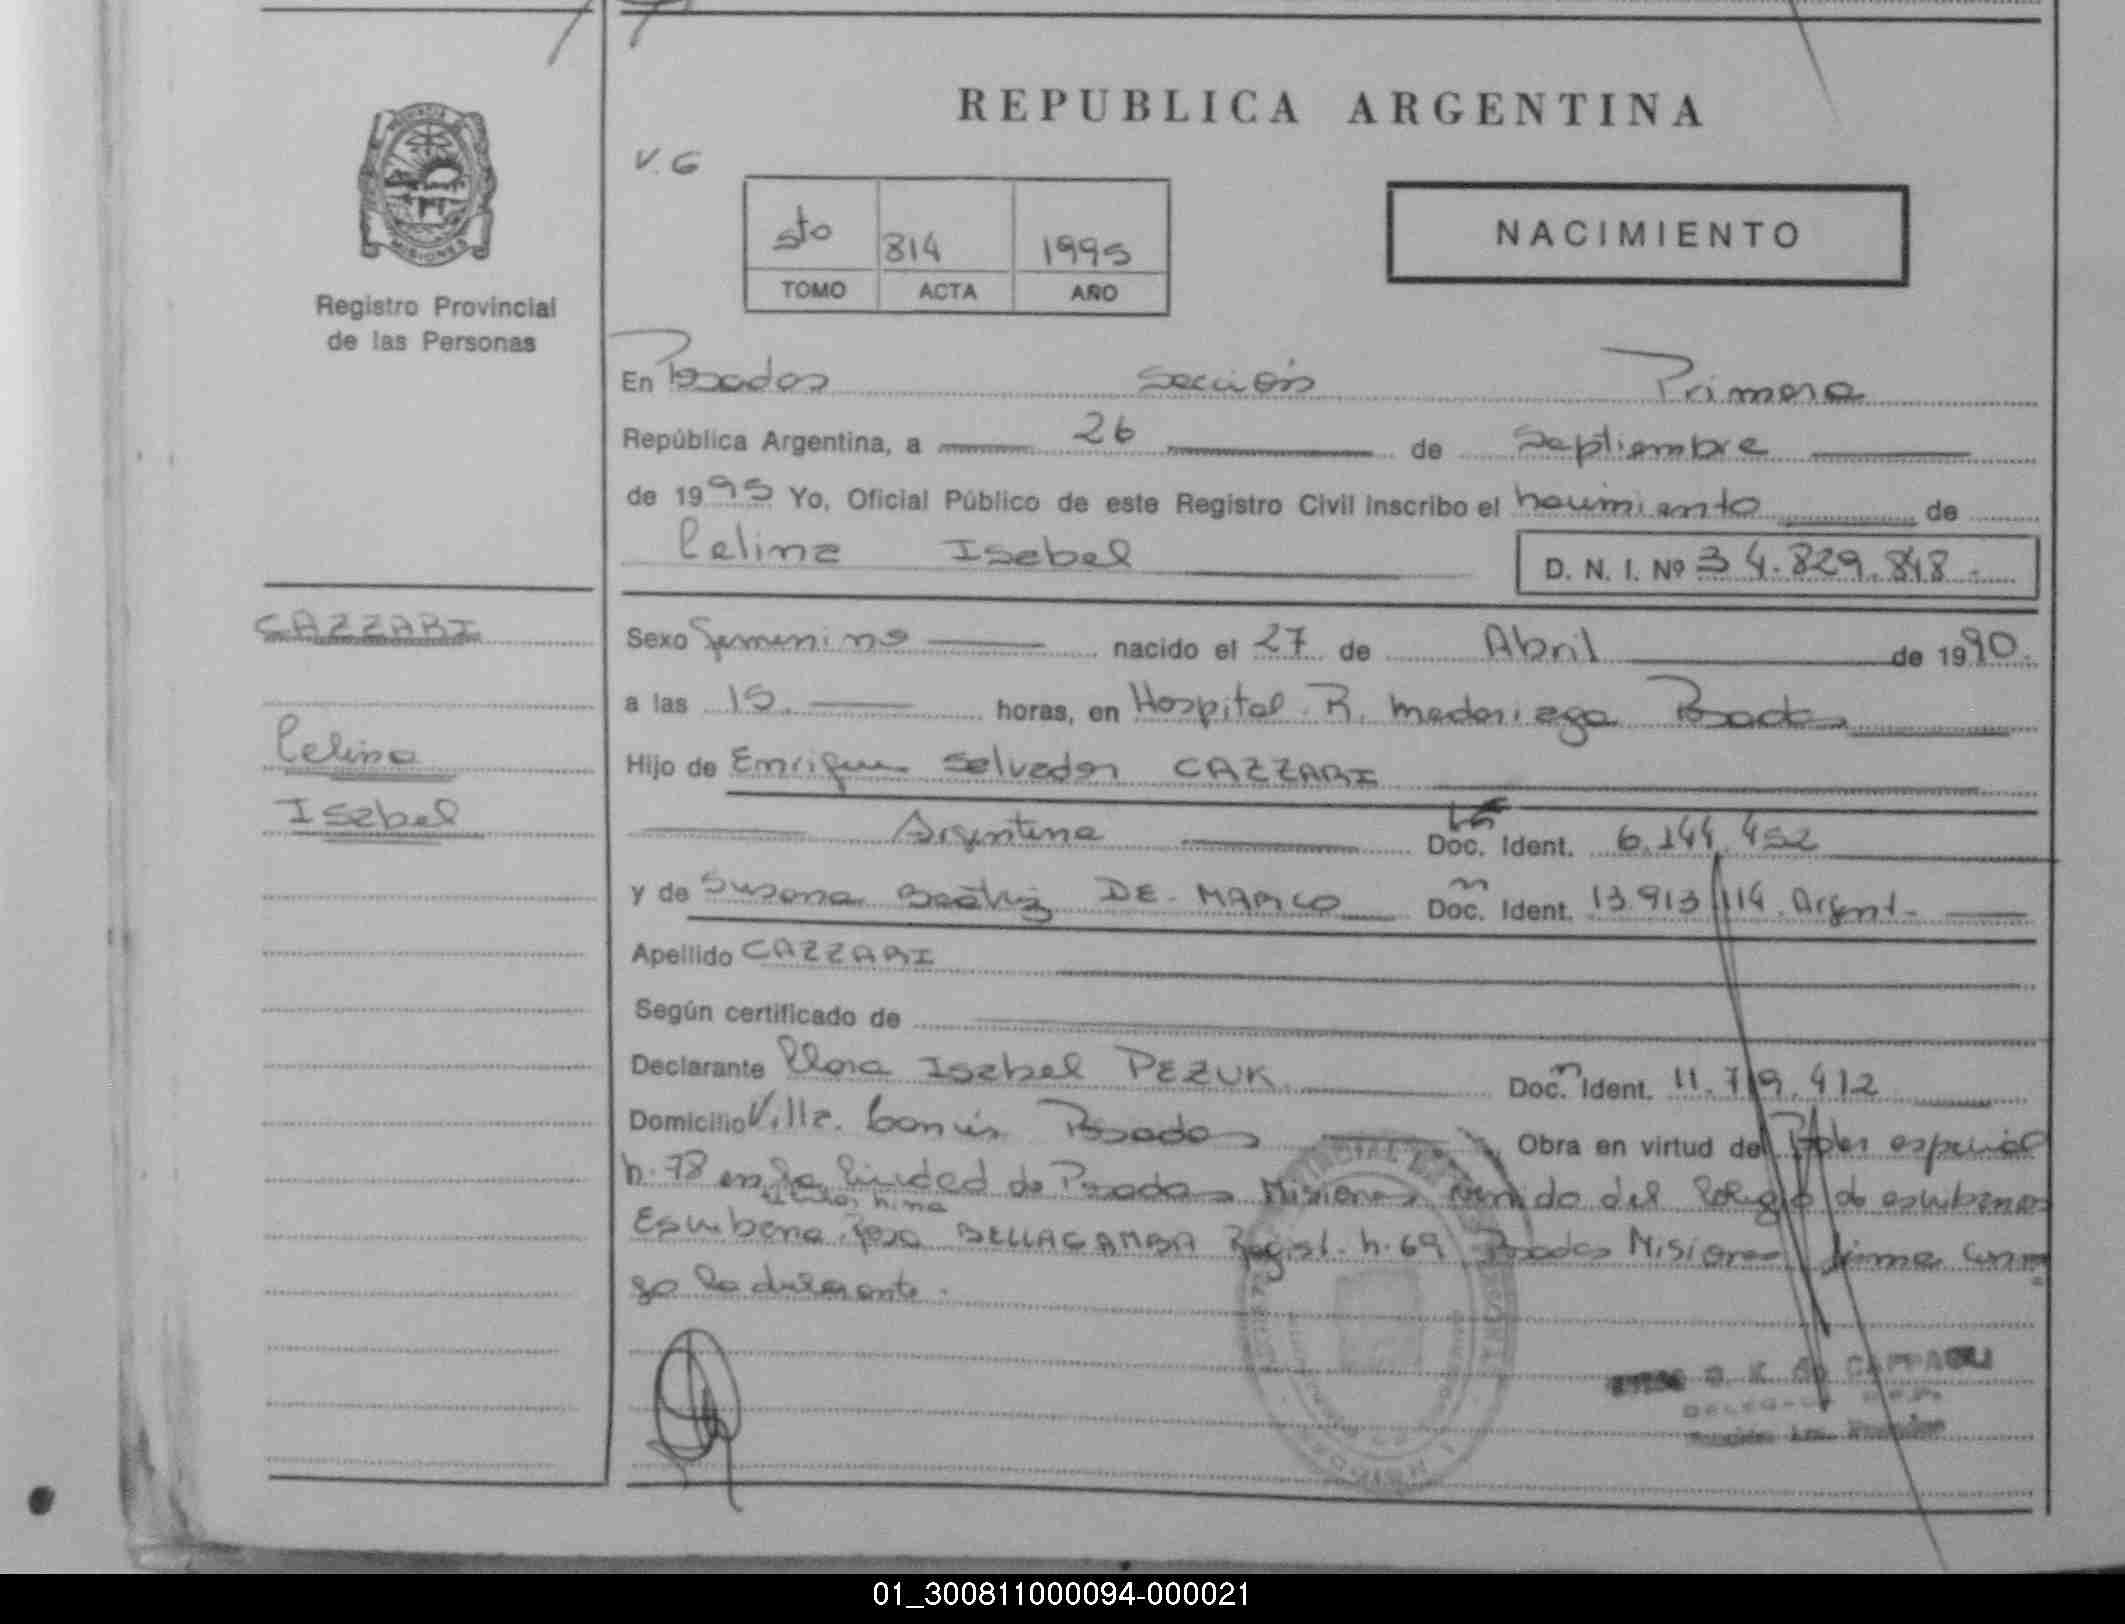 REPUBLICA ARGENTINA
V. G
NACIMIENTO
5to 814 1995
TOMO ACTA AÑO
Registro Provincial
de las Personas
En Posadas Sección Primera
República Argentina, a 26 de Septiembre
de 1995 Yo, Oficial Público de este Registro Civil inscribo el nacimiento de
Celina Isabel D. N. I. Nº 34.829.848.-
CAZZARI
Celina
Isabel
Sexo femenino nacido el 27 de Abril de 1990.
a las 15. horas, en Hospital R. Madariaga Posadas
Hijo de Enrique Salvador CAZZARI
Argentina Doc. Ident. 6.144.452
y de Susana Beatriz DE MARCO Doc. Ident. 13.913.114 Argent.
Apellido CAZZARI
Según certificado de
Declarante Clora Isabel PEZUK Doc. Ident. 11.719.412
Domicilio Villa Posadas Obra en virtud de Poder especial
n. 78 en la Ciudad de Posadas Misiones del Colegio de escribanos
Escribana Rosa BELLAGAMBA Regist. n. 69 Posadas Misiones firma conmi
go la declarante.
01_300811000094-000021